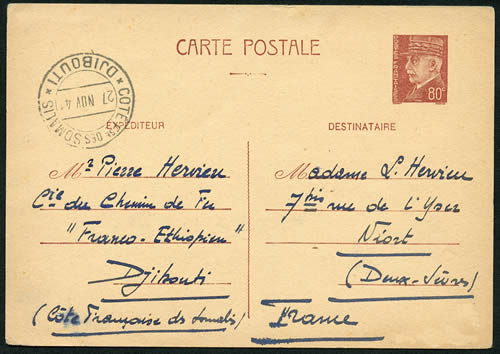 CARTE POSTALE
80c
DJIBOUTI
27 NOV 41
COTE Fse DES SOMALIS
EXPÉDITEUR
DESTINATAIRE
Mr Pierre Hervieu
Cie du Chemin de Fer
"Franco-Ethiopien"
Djibouti
(Côte Française des Somalis)
Madame L. Hervieu
7bis rue de l'Yser
Niort
(Deux-Sèvres)
France